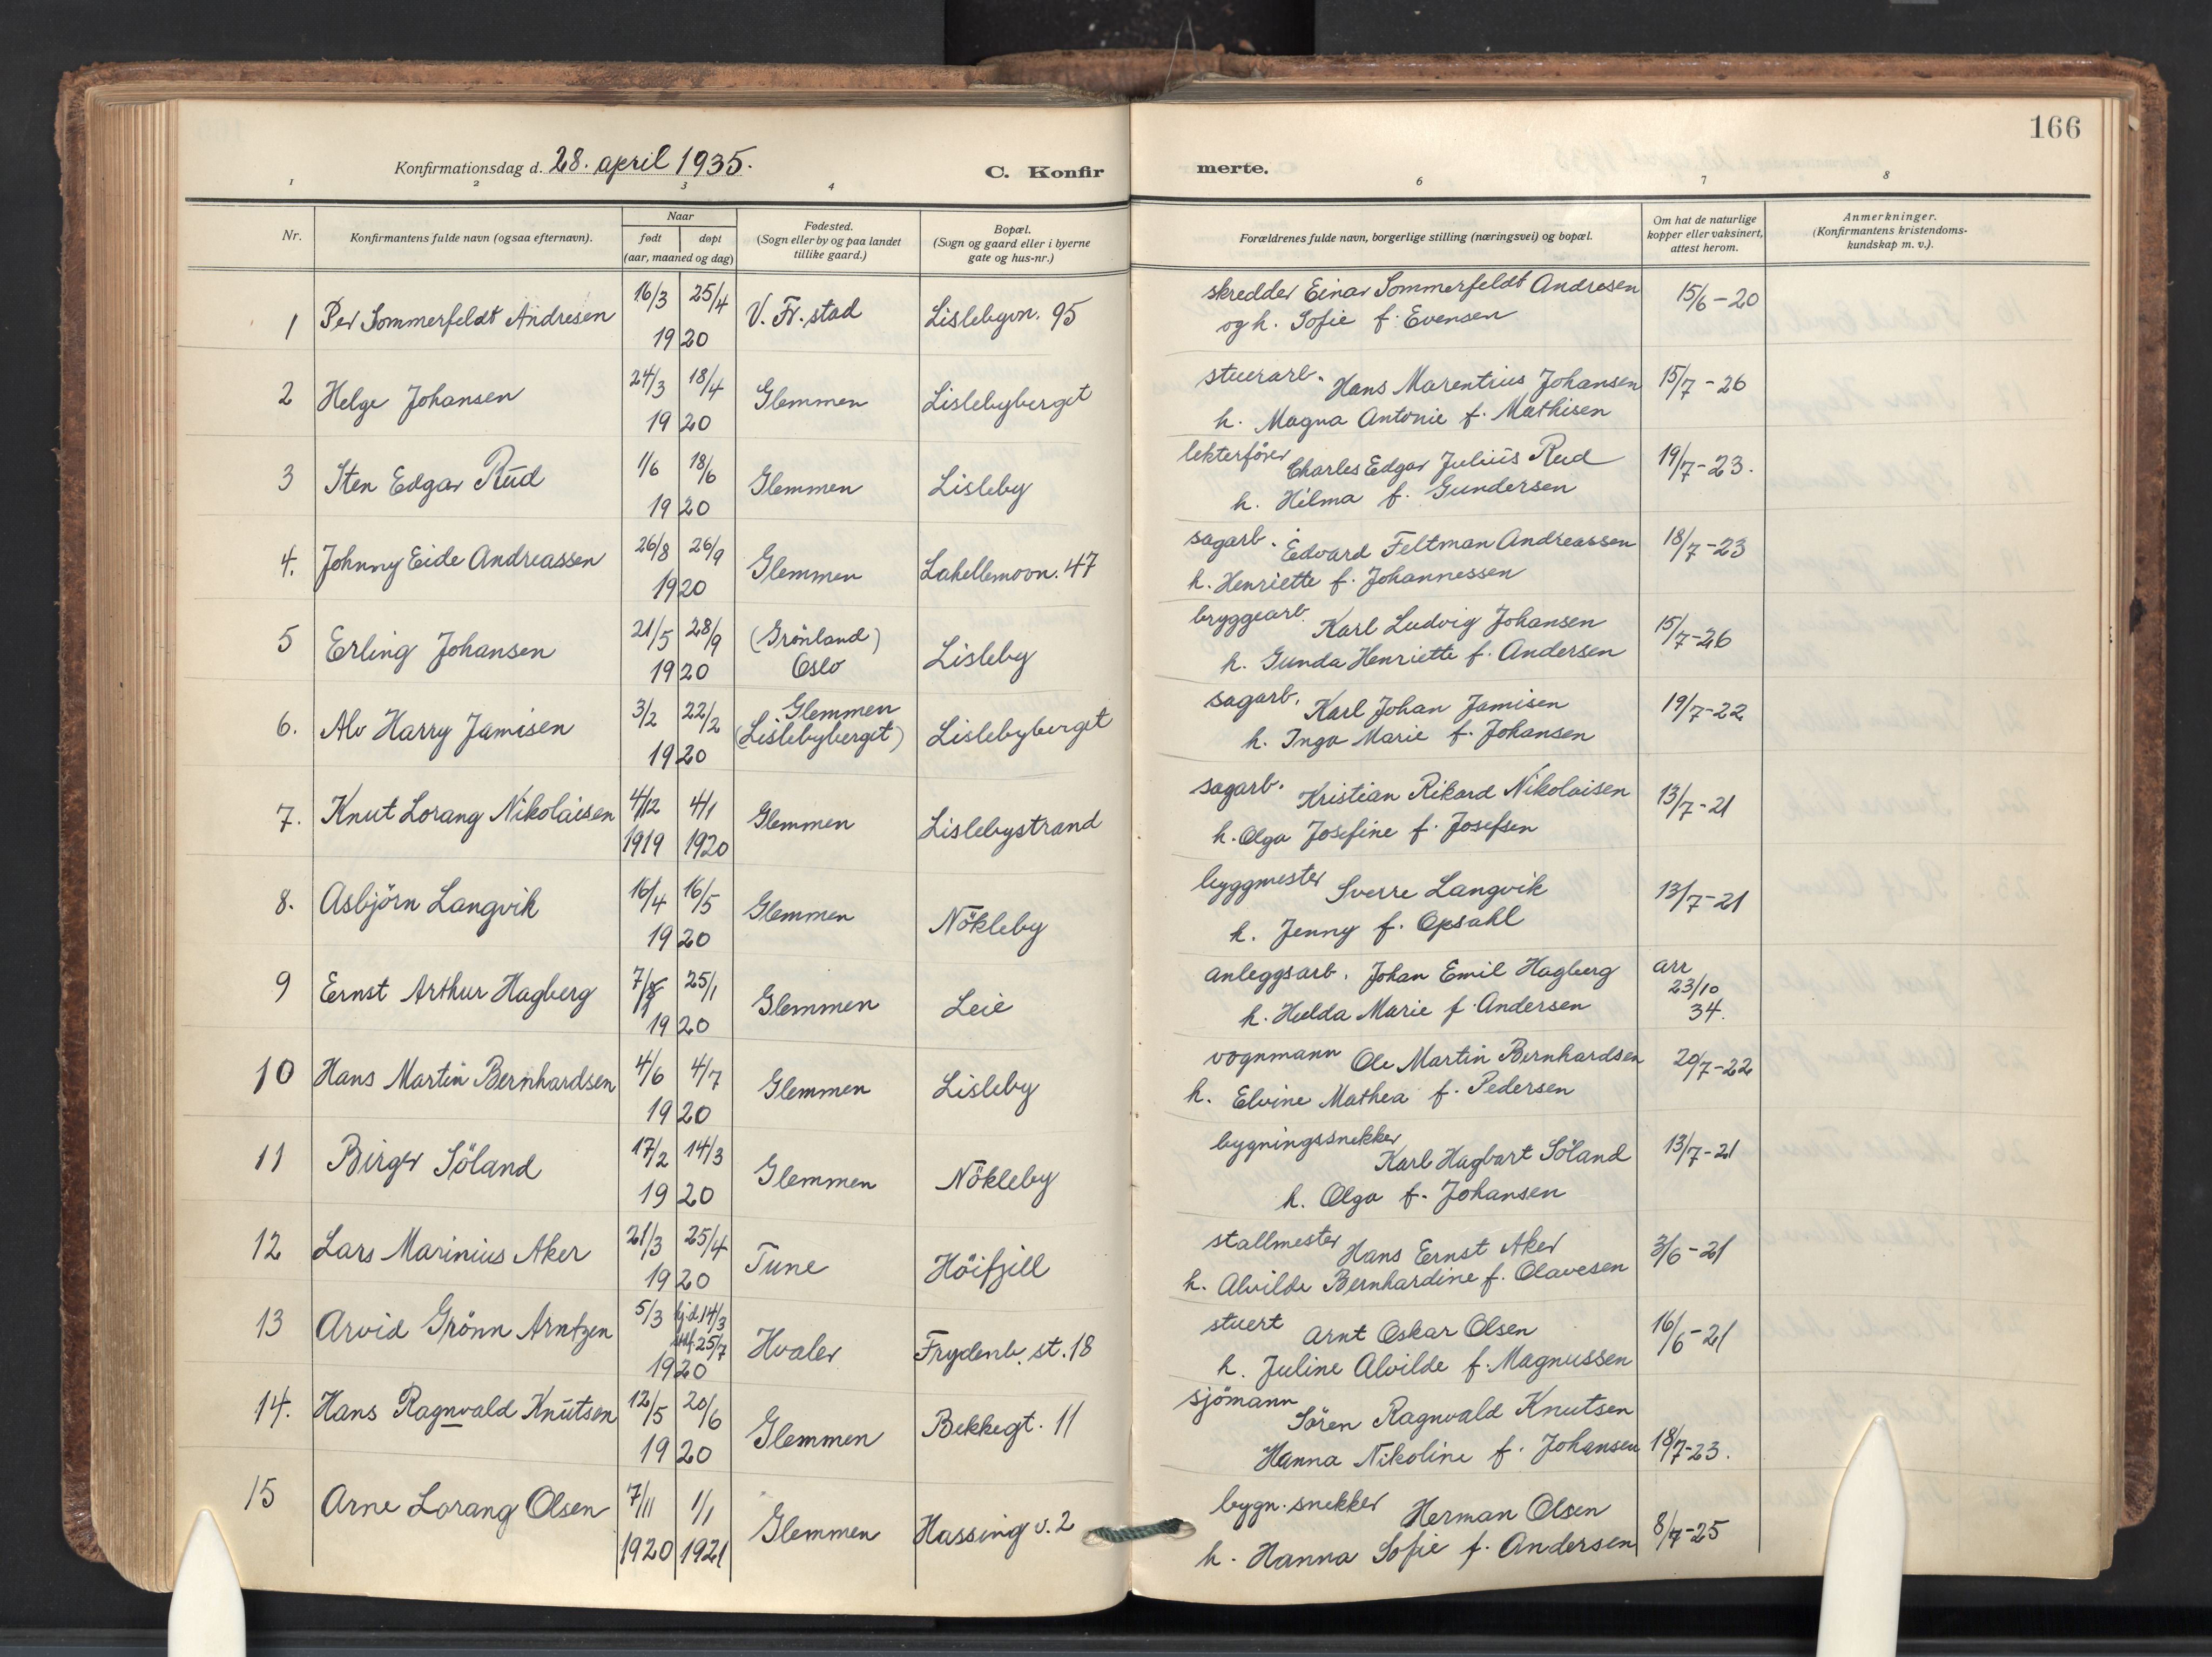 166
Konfirmationsdag d. 28. april 1935.
C. Konfirmerte.
1 2 3 4 6 7 8
Nr.
Konfirmantens fulde navn (ogsaa efternavn).
Naar
født døpt
(aar, maaned og dag)
Fødested.
(Sogn eller by og paa landet
tillike gaard.)
Bopæl.
(Sogn og gaard eller i byerne
gate og hus-nr.)
Forældrenes fulde navn, borgerlige stilling (næringsvei) og bopæl.
Om hat de naturlige
kopper eller vaksinert,
attest herom.
Anmerkninger.
(Konfirmantens kristendoms-
kundskap m. v.).
1 Per Sommerfeldt Andresen 16/3 25/4 1920 V. Fr. stad Lislebyvn. 95
skredder Einar Sommerfeldt Andresen 15/6-20
og h. Sofie f. Evensen
2 Helge Johansen 24/3 18/4 1920 Glemmen Lislebyberget
stuerarb. Hans Marentius Johansen 15/7-26
h. Magna Antonie f. Mathisen
3 Sten Edgar Rud 1/6 18/6 1920 Glemmen Lisleby
lekterfører Charles Edgar Julius Rud 19/7-23.
h. Hilma f. Gundersen
4. Johnny Eide Andreassen 26/8 26/9 1920 Glemmen Lahellemovn. 47
sagarb. Edvard Feltman Andreassen 18/7-23
h. Henriette f. Johannessen
5 Erling Johansen 21/5 28/9 1920 (Grönland) Oslo Lisleby
bryggearb. Karl Ludvig Johansen 15/7-26
h. Gunda Henriette f. Andersen
6. Alv Harry Jamisen 3/2 22/2 1920 Glemmen (Lislebyberget) Lislebyberget
sagarb. Karl Johan Jamisen 19/7-22
h. Inga Marie f. Johansen
7. Knut Lorang Nikolaisen 4/12 1919 4/1 1920 Glemmen Lislebystrand
sagarb. Kristian Rikard Nikolaisen 13/7-21
h. Olga Josefine f. Josefsen
8. Asbjörn Langvik 16/4 16/5 1920 Glemmen Nökleby
byggmester Sverre Langvik 13/7-21
h. Jenny f. Opsahl
9 Ernst Arthur Hagberg 25/1 1920 Glemmen Leie
anleggsarb. Johan Emil Hagberg arr 23/10 34.
h. Hulda Marie f. Andersen
10 Hans Martin Bernhardsen 4/6 4/7 1920 Glemmen Lisleby
vognmann Ole Martin Bernhardsen 20/7-22
h. Elvine Mathea f. Pedersen
11 Birger Söland 17/2 14/3 1920 Glemmen Nökleby
bygningssnekker Karl Hagbart Söland 13/7-21
h. Olga f. Johansen
12 Lars Marinius Aker 21/3 25/4 1920 Tune Höifjell
stallmester Hans Ernst Aker 3/6-21
h. Alvilde Bernhardine f. Olavesen
13 Arvid Grönn Arntzen 5/3 hjd. 14/3 stdf. 25/7 1920 Hvaler Frydenb. st. 18
stuert Arnt Oskar Olsen 16/6-21
h. Juline Alvilde f. Magnussen
14. Hans Ragnvald Knutsen 12/5 20/6 1920 Glemmen Bekkegt. 11
sjömann Sören Ragnvald Knutsen
Hanna Nikoline f. Johansen 18/7-23.
15 Arne Lorang Olsen 7/11 1920 1/1 1921 Glemmen Hassing v. 2
bygn. snekker Herman Olsen
h. Hanna Sofie f. Andersen 8/7-25